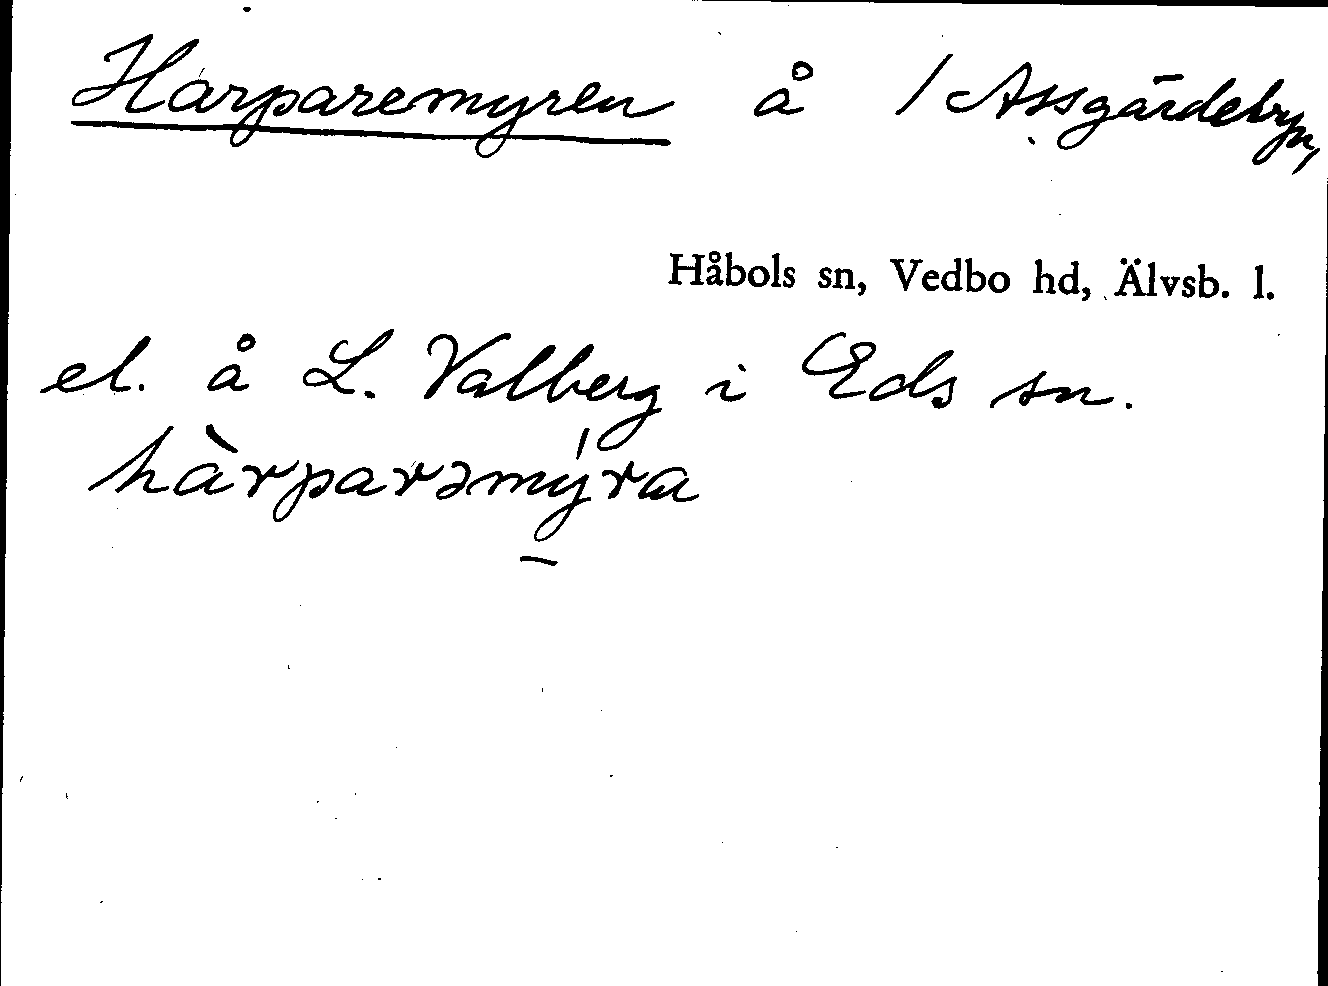 Harparemyren å 1 Assgärdebyn,
Håbols sn, Vedbo hd, Älvsb. l.
el. å L. Valberg i Eds sn.
hàrparəmýra